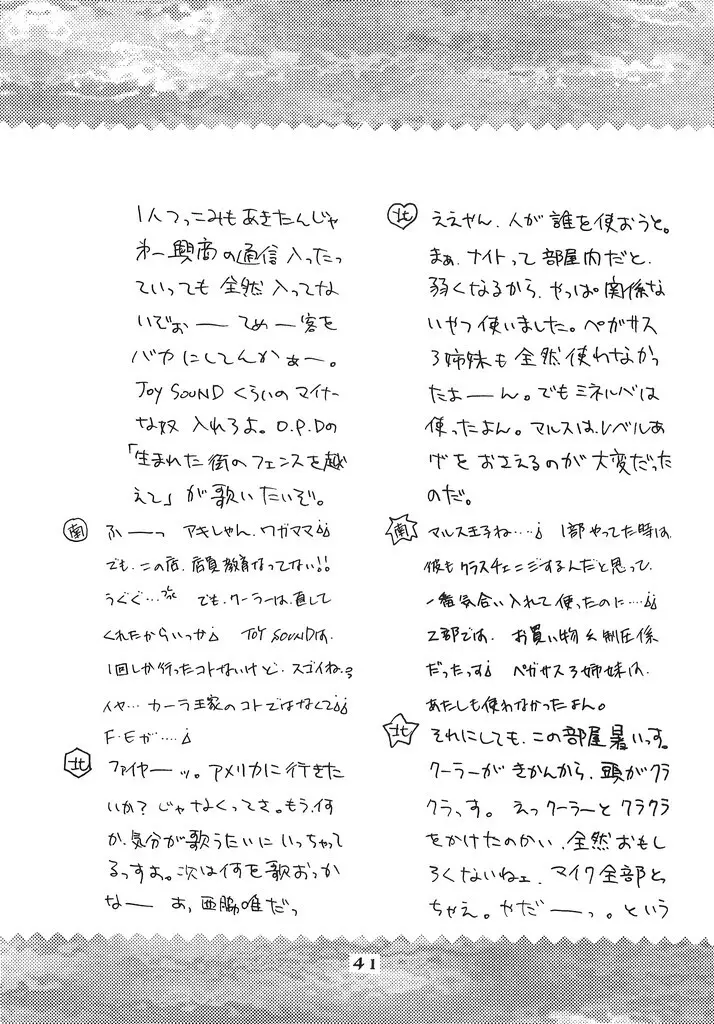 北 ええやん、人が誰を使おうと。
まぁ、ナイトって部屋内だと、
弱くなるから、やっぱ関係な
いやつ使いました。ペガサス
3姉妹も全然使わなかっ
たよーーん。でもミネルバは
使ったよん。マルスは、レベルあ
げをおさえるのが大変だった
のだ。
南 マルス王子ね‥‥。¡ 1部やってた時は、
彼もクラスチェンジするんだと思って、
一番気合い入れて使ったのに‥‥¡¡
2部では、お買い物&制圧係
だったっす¡ ペガサス3姉妹は、
あたしも使わなかったよん。
北 それにしても、この部屋暑いっす。
クーラーがきかんから、頭がクラ
クラっす。えっクーラーとクラクラ
をかけたのかい、全然おもし
ろくないねェ、マイク全部とっ
ちゃえ。やだーーっ。という
1人つっこみもあきたんじゃ
わー興商の通信入ったっ
ていっても全然入ってな
いぞぉーーてめー客を
バカにしてんかぁー。
JOY SOUNDくらいのマイナー
な奴入れろよ。O.P.Dの
「生まれた街のフェンスを越
えて」が歌いたいぞ。
南 ふーーっ アキしゃん、ワガママ¡¡
でも、この店、店員教育なってない!!
うぐぐ… でも、クーラーは、直して
くれたからいっか¡ JOY SOUNDは、
1回しか行ったコトないけど、スゴイね。
イヤ… カーラ王家のコトではなくて¡¡
F・Eが‥‥¡
北 ファイヤーーッ。アメリカに行きた
いか?じゃなくってさ。もう、何
か、気分が歌うたいにいっちゃって
るっすよ。次は何を歌おっか
なーー あ、西脇唯だっ
41